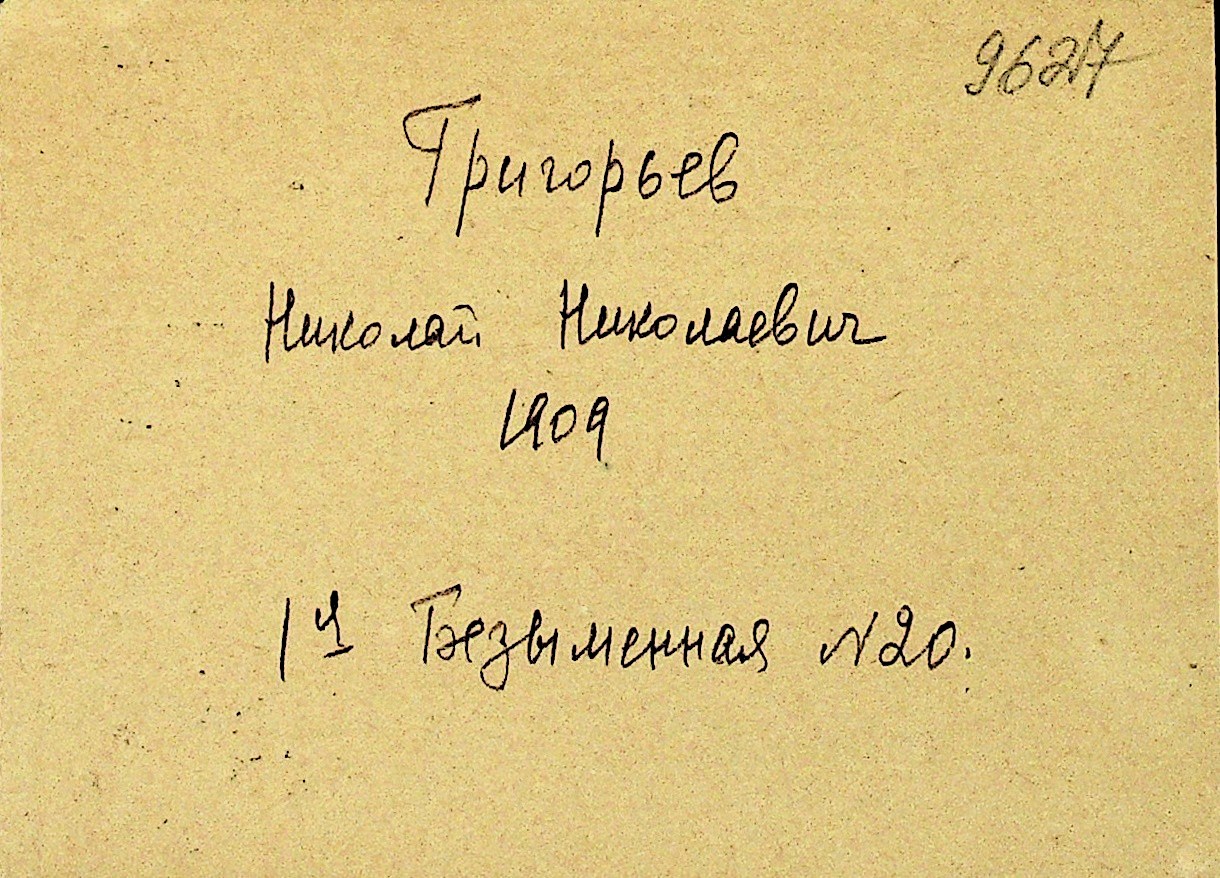 9627
Григорьев
Николай Николаевич
1909
1я Безыменная N20.